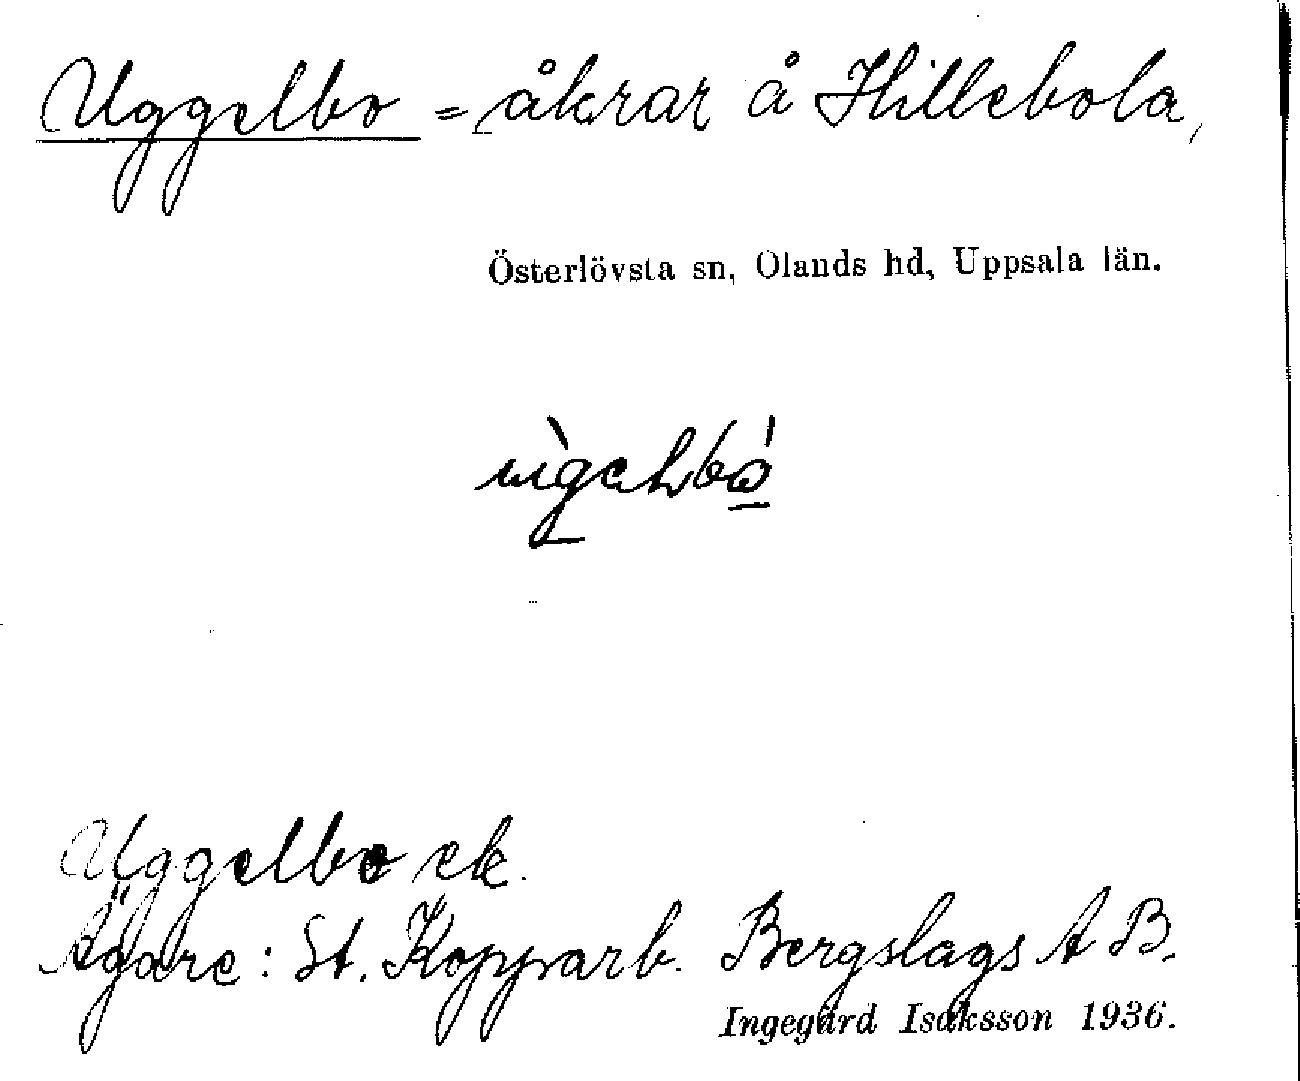 Uggelbo = åkrar å Hillebola,
Österlövsta sn, Olands hd, Uppsala län.
Uggelbo ek.
Ägare: St. Kopparb. Bergslags A B.
Ingegärd Isaksson 1936.